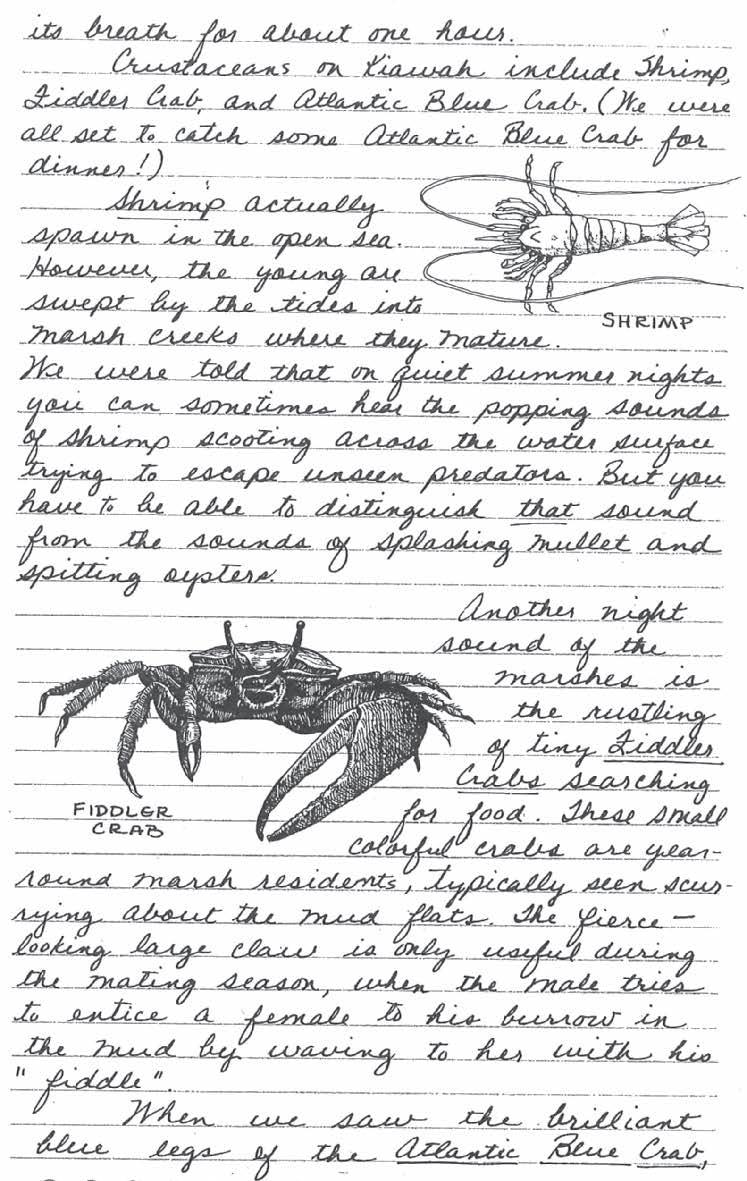 its breath for about one hour.
Crustaceans on Kiawah include Shrimp,
Fiddler Crab, and Atlantic Blue Crab. (We were
all set to catch some Atlantic Blue Crab for
dinner!)
Shrimp actually
spawn in the open sea.
However, the young are
swept by the tides into
SHRIMP
marsh creeks where they mature.
We were told that on quiet summer nights
you can sometimes hear the popping sounds
of shrimp scooting across the water surface
trying to escape unseen predators. But you
have to be able to distinguish that sound
from the sounds of splashing mullet and
spitting oysters.
Another night
sound of the
marshes is
the rustling
of tiny Fiddler
Crabs searching
FIDDLER
CRAB
for food. These small
colorful crabs are year-
round marsh residents, typically seen scur-
rying about the mud flats. The fierce-
looking large claw is only useful during
the mating season, when the male tries
to entice a female to his burrow in
the mud by waving to her with his
"fiddle".
When we saw the brilliant
blue legs of the Atlantic Blue Crab,